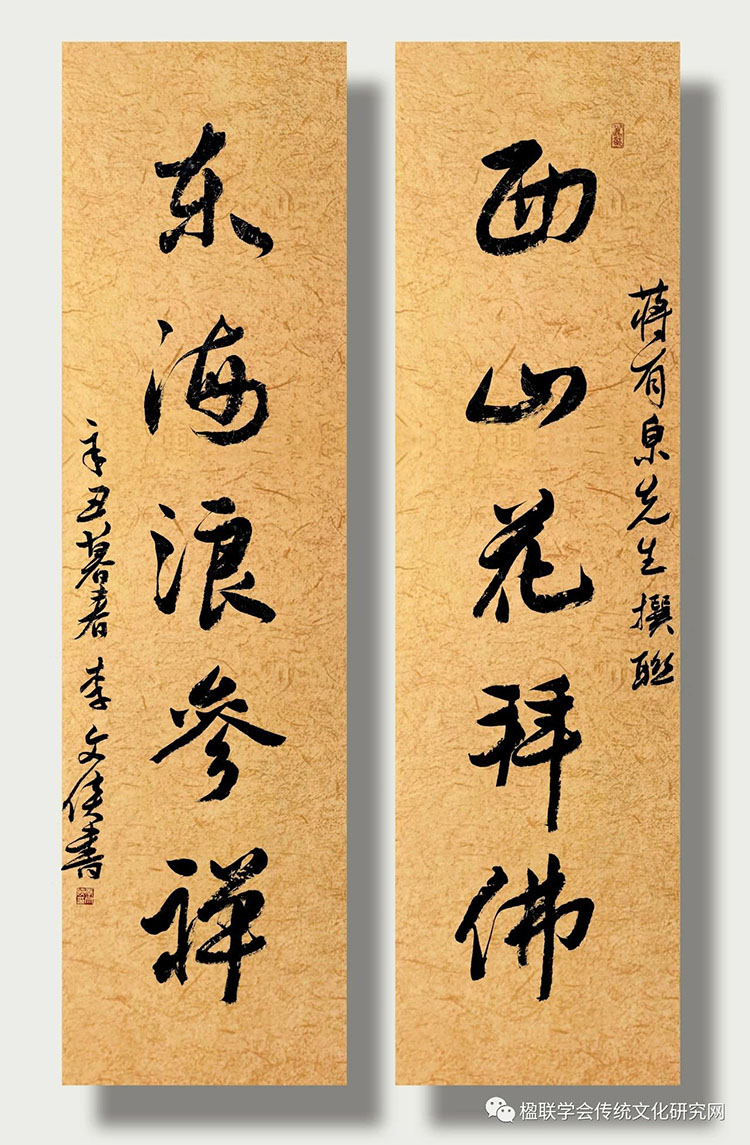 西山花拜佛
蒋有泉先生撰联
东海浪参禅
辛丑暮春 李文侠书
楹联学会传统文化研究网